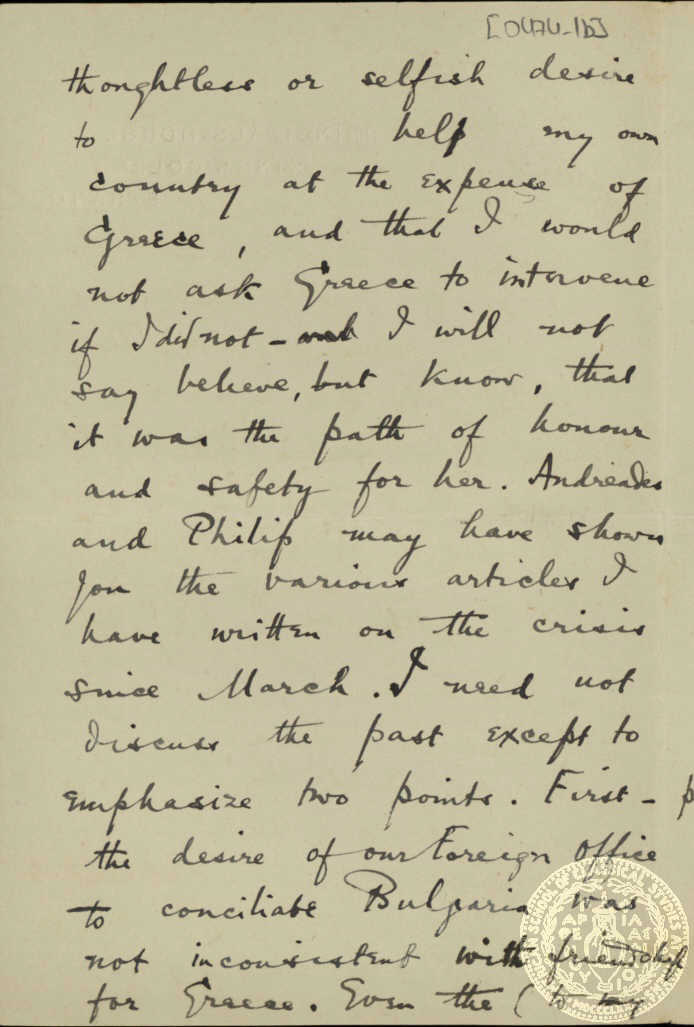 [0474-1b]
thoughtless or selfish desire
to help my own
country at the expense of
Greece, and that I would
not ask Greece to intervene
if I did not - and I will not
say believe, but know, that
it was the path of honour
and safety for her. Andreades
and Philip may have shown
you the various articles I
have written on the crisis
since March. I need not
discuss the past except to
emphasize two points. First -
the desire of our Foreign Office
to conciliate Bulgaria was
not inconsistent with friendship
for Greece. Even the (to my